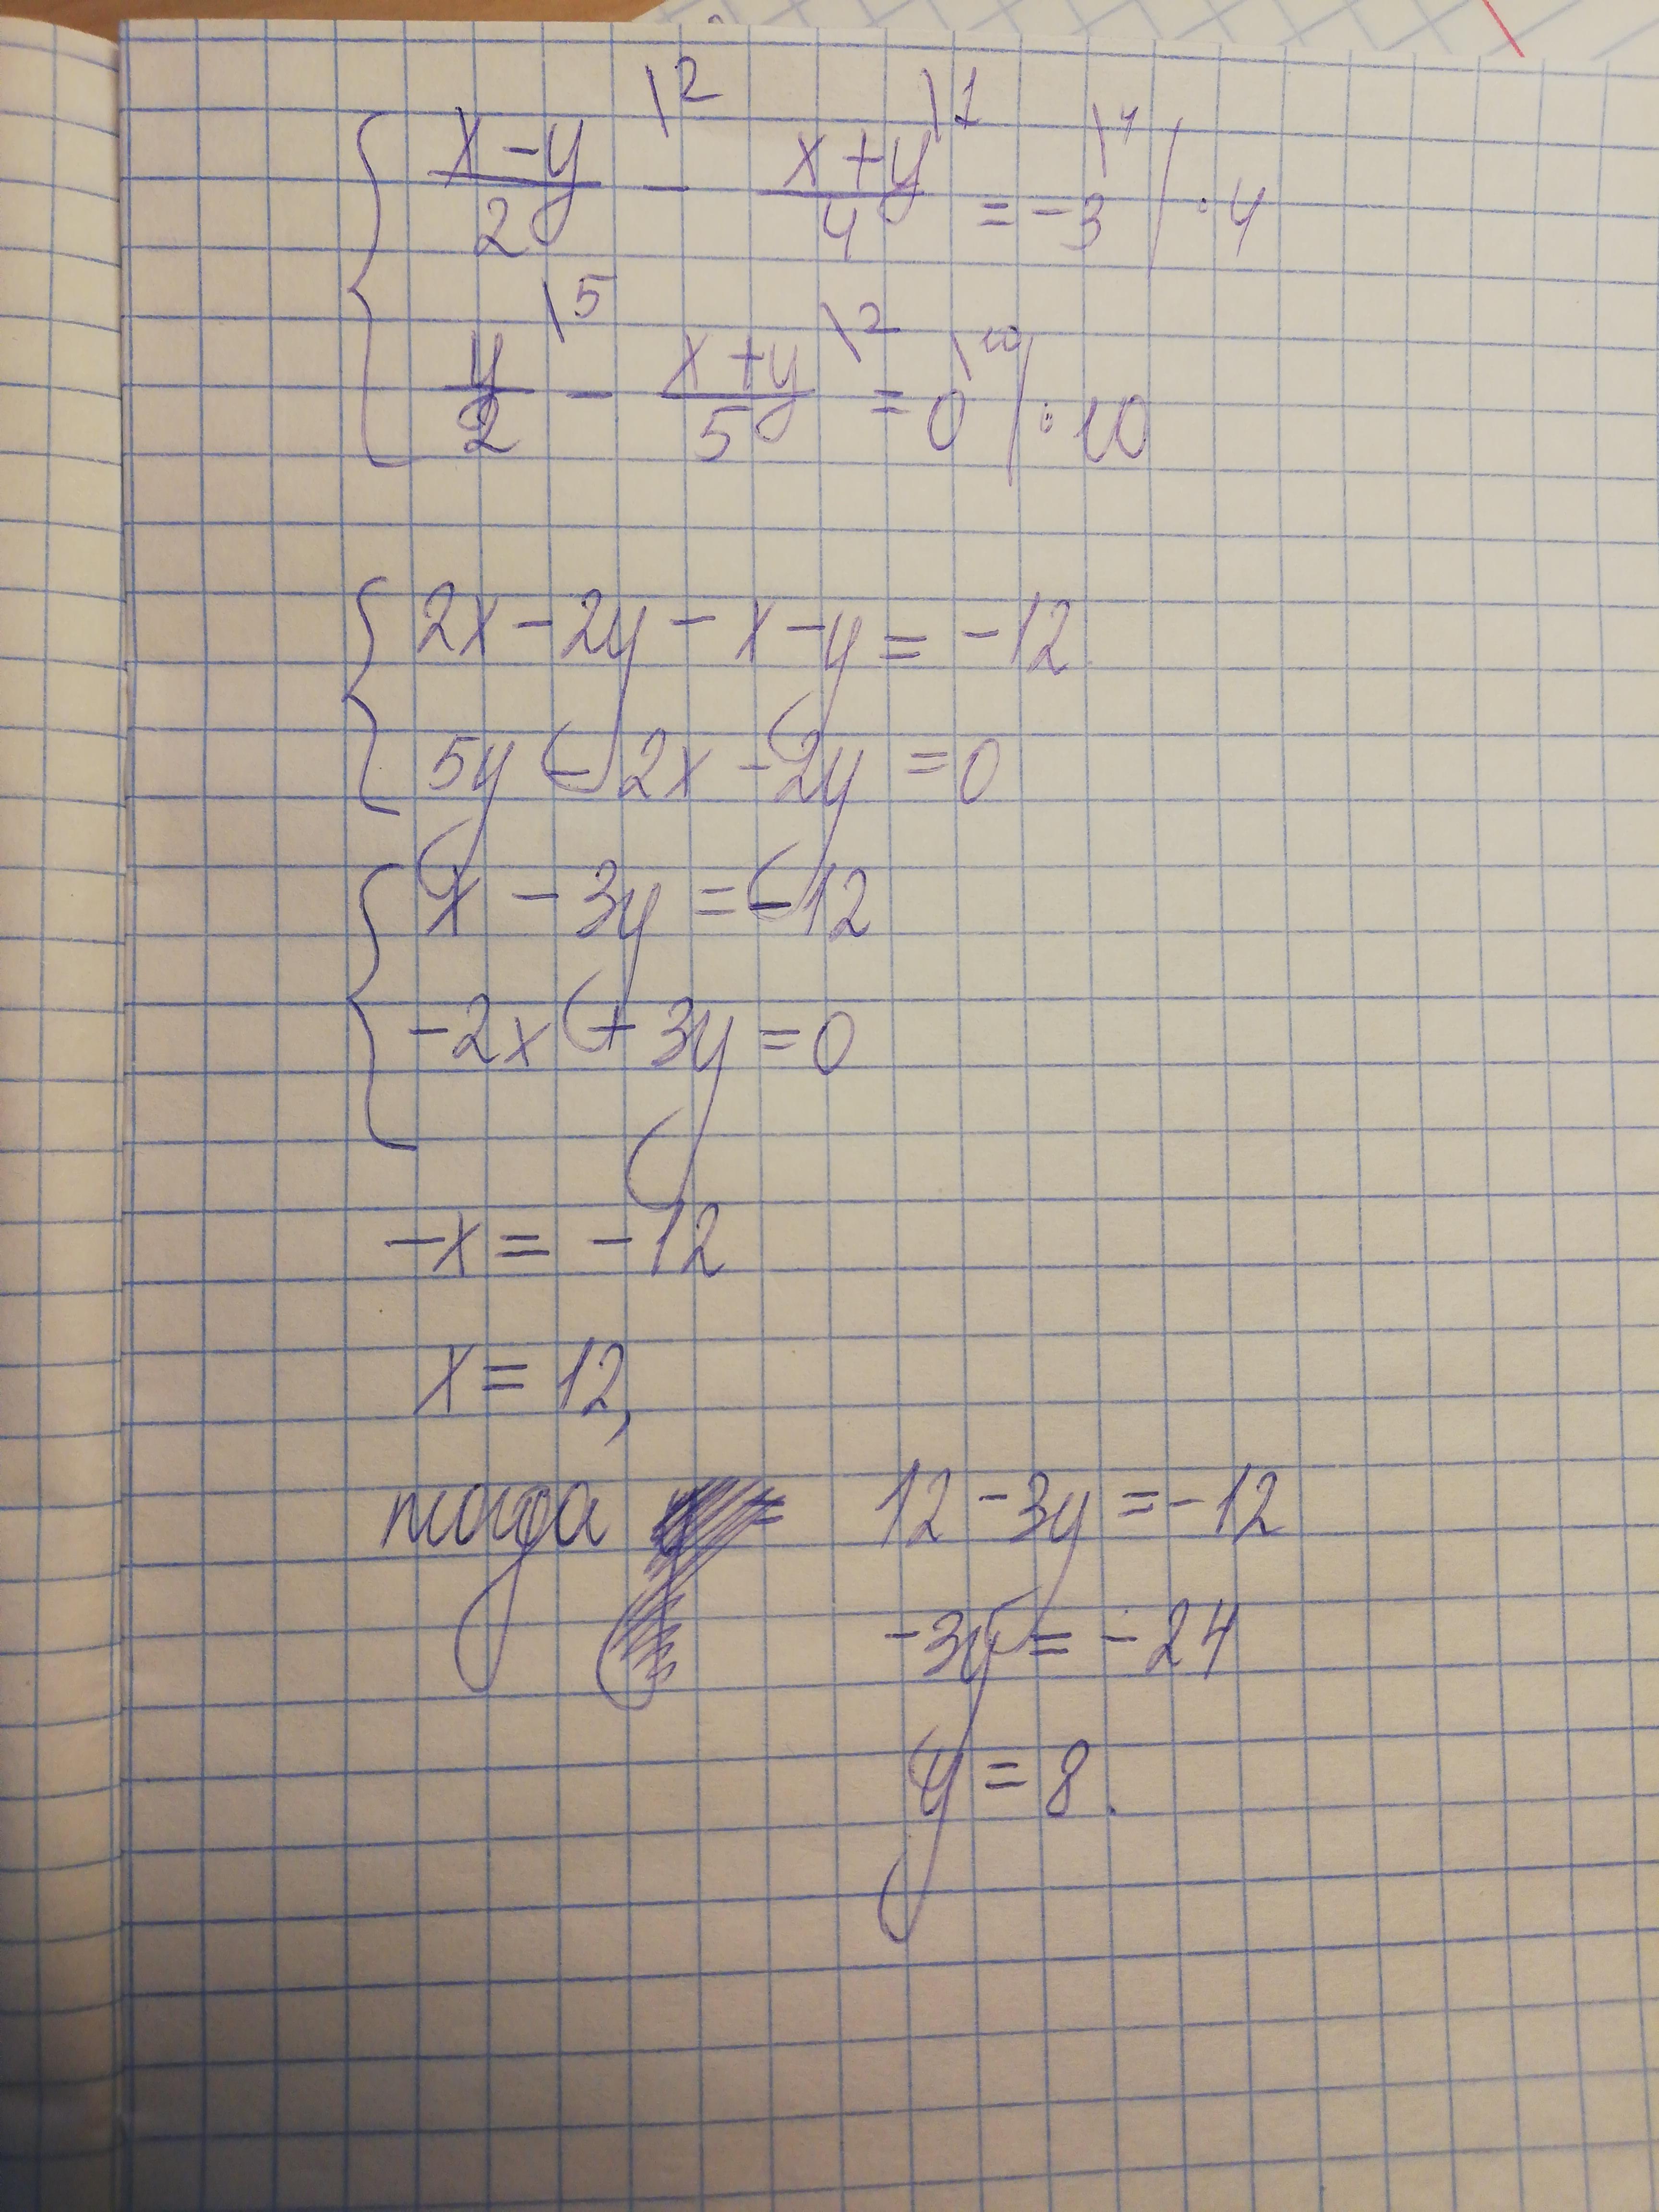 x-y/2 \2 - x+y/4 \1 = -3 \4 | · 4
y/2 \5 - x+y/5 \2 = 0 \10 | · 10
2x - 2y - x - y = -12
5y - 2x - 2y = 0
x - 3y = -12
-2x + 3y = 0
-x = -12
x = 12,
тогда 12 - 3y = -12
-3y = -24
y = 8.